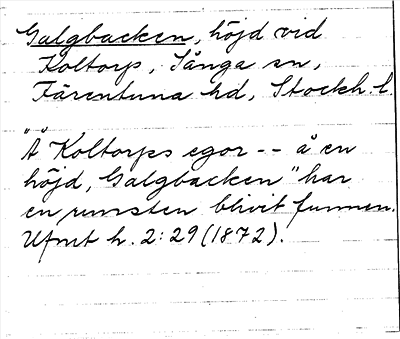 Galgbacken, höjd vid
Koltorp, Sånga sn,
Färentuna hd, Stockh. l.
"Å Koltorps egor -- å en
höjd, Galgbacken" har
en runsten blivit funnen.
Ufmt h. 2:29 (1872).